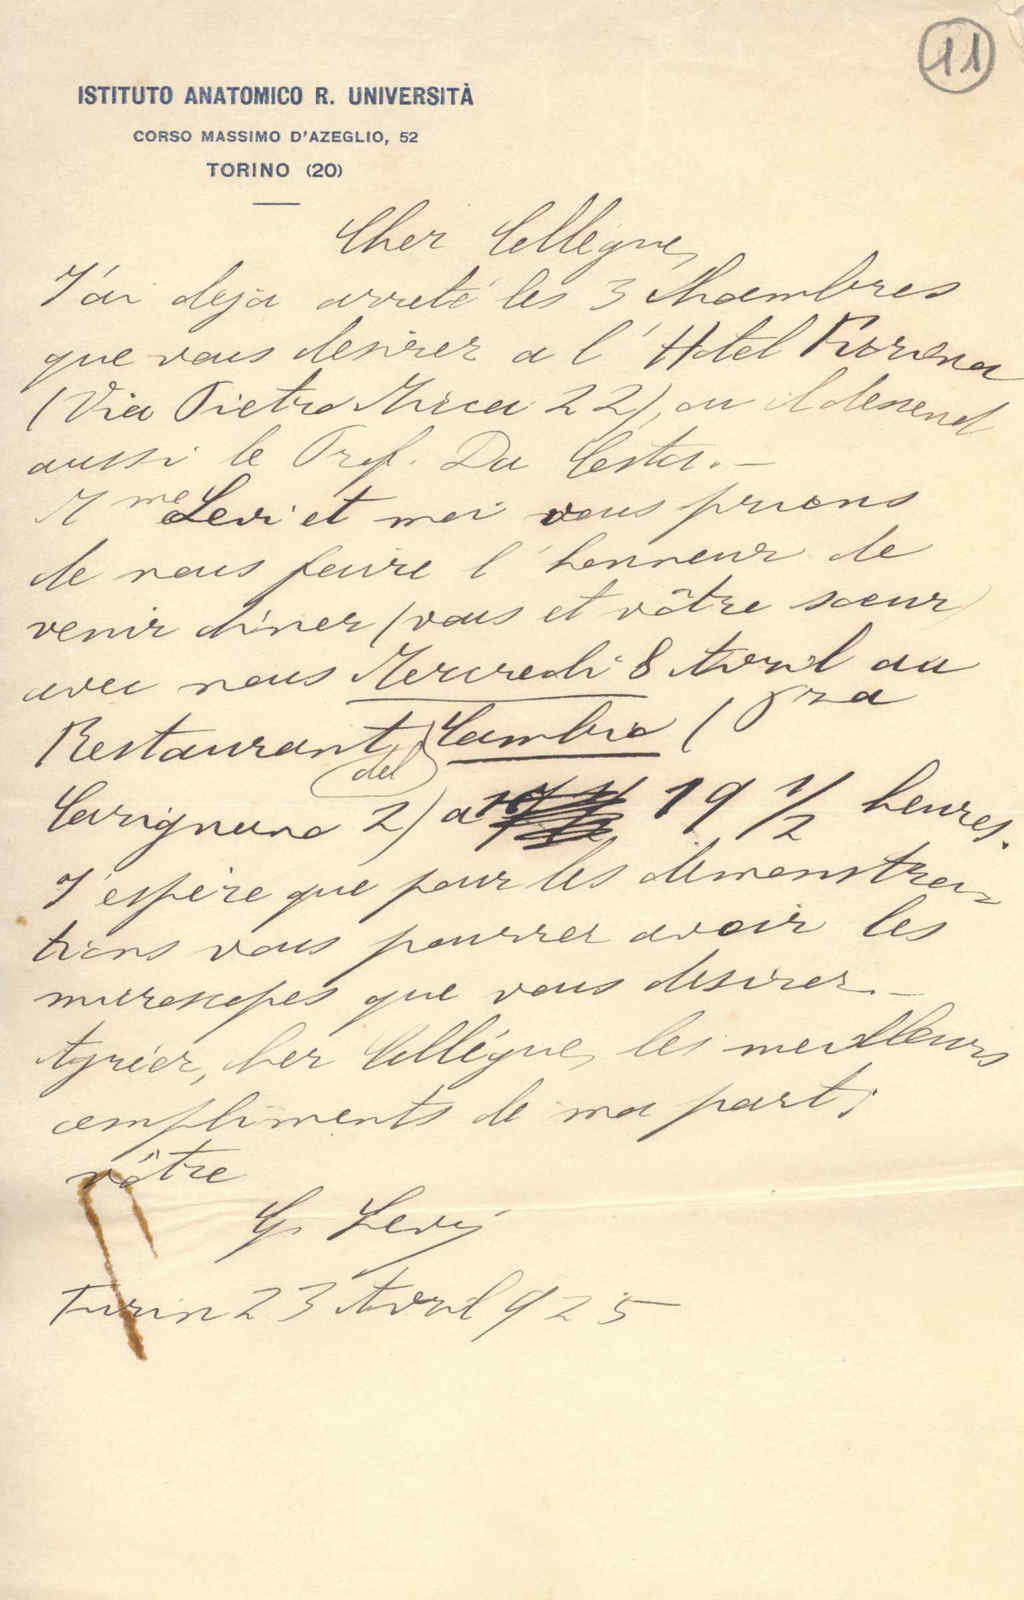 11
ISTITUTO ANATOMICO R. UNIVERSITÀ
CORSO MASSIMO D'AZEGLIO, 52
TORINO (20)
Cher Collègue,
J'ai deja arreté les 3 chambres
que vous desirez a l'Hotel
(Via Pietro Micca 22), ou il descend
aussi le Prof. Da Costa. —
Mme Levi et moi vous prions
de nous faire l'honneur de
venir diner (vous et vôtre soeur)
avec nous Mercredi 8 Avril au
Restaurant del Cambio (Pza
Carignano 2) a 19 1/2 heures.
J'espère que pour les démonstra-
tions vous pourrez avoir les
microscopes que vous desirez. —
Agréez, cher Collègue, les meilleurs
compliments de ma part;
vôtre
G. Levi
Turin 23 Avril 925